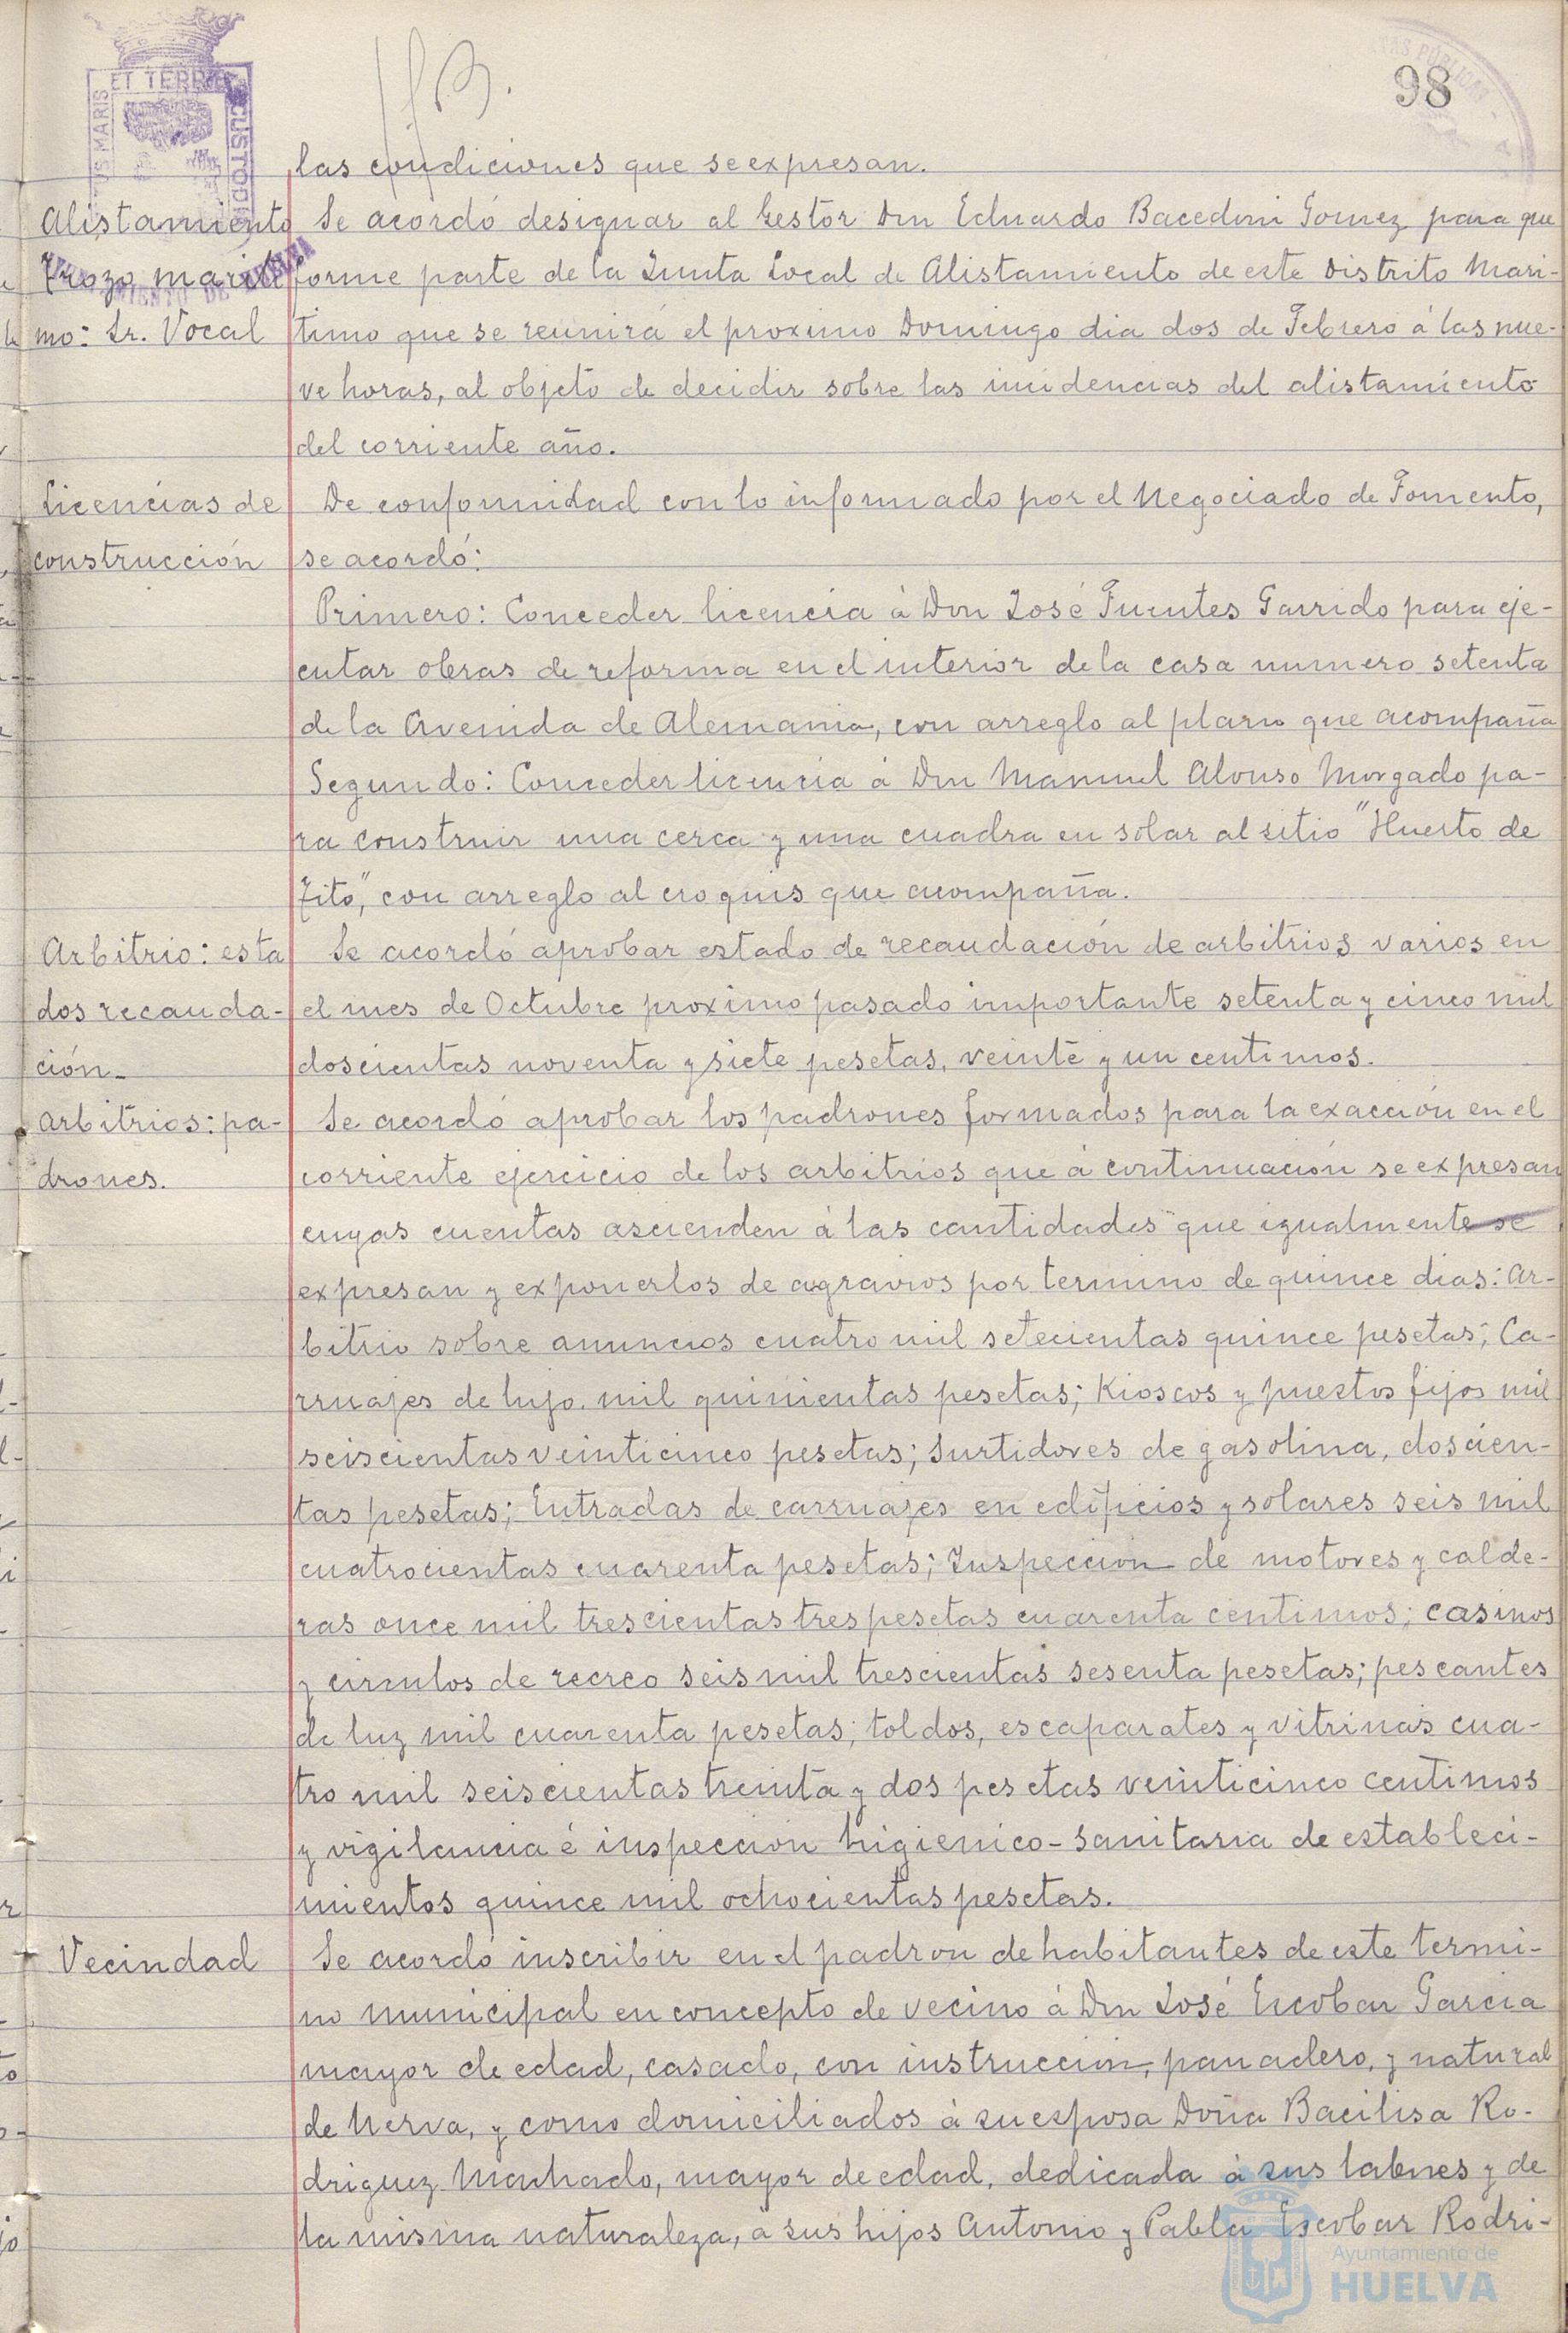 98
las condiciones que se expresan.
Alistamiento
Trozo mariti
mo: Sr. Vocal
Se acordó designar al Gestor Don Eduardo Bacedoni Gomez para que
forme parte de la Junta Local de Alistamiento de este Distrito Mari-
timo que se reunirá el proximo Domingo dia dos de Febrero á las nue-
ve horas, al objeto de decidir sobre las incidencias del alistamiento
del corriente año.
Licencias de
construcción
De conformidad con lo informado por el Negociado de Fomento,
se acordó:
Primero: Conceder licencia á Don José Fuentes Garrido para eje-
cutar obras de reforma en el interior de la casa numero setenta
de la Avenida de Alemania, con arreglo al plano que acompaña
Segundo: Conceder licencia á Don Manuel Alonso Morgado pa-
ra construir una cerca y una cuadra en solar al sitio "Huerto de
Tito," con arreglo al croquis que acompaña.
Arbitrio: esta
dos recauda-
ción.
Se acordó aprobar estado de recaudación de arbitrios varios en
el mes de Octubre proximo pasado importante setenta y cinco mil
doscientas noventa y siete pesetas, veinte y un centimos.
Arbitrios: pa-
drones.
Se acordó aprobar los padrones formados para la exacción en el
corriente ejercicio de los arbitrios que á continuación se expresan
cuyas cuentas ascienden á las cantidades que igualmente se
expresan y exponerlos de agravios por termino de quince dias: Ar-
bitrio sobre anuncios cuatro mil setecientas quince pesetas; Ca-
rruajes de lujo, mil quinientas pesetas; Kioscos y puestos fijos mil
seiscientas veinticinco pesetas; Surtidores de gasolina, doscien-
tas pesetas; Entradas de carruajes en edificios y solares seis mil
cuatrocientas cuarenta pesetas; Inspección de motores y calde-
ras once mil trescientas tres pesetas cuarenta centimos; casinos
y circulos de recreo seis mil trescientas sesenta pesetas; pescantes
de luz mil cuarenta pesetas; toldos, escaparates y vitrinas cua-
tro mil seiscientas treinta y dos pesetas veinticinco centimos
y vigilancia é inspección higienico-sanitaria de estableci-
mientos quince mil ochocientas pesetas.
Vecindad
Se acordó inscribir en el padron de habitantes de este termi-
no municipal en concepto de vecino á Don José Escobar Garcia
mayor de edad, casado, con instruccion, panadero, y natural
de Nerva, y como domiciliados á su esposa Doña Bacilisa Ro-
driguez Machado, mayor de edad, dedicada á sus labores y de
la misma naturaleza, á sus hijos Antonio y Pabla Escobar Rodri-
Ayuntamiento de
HUELVA